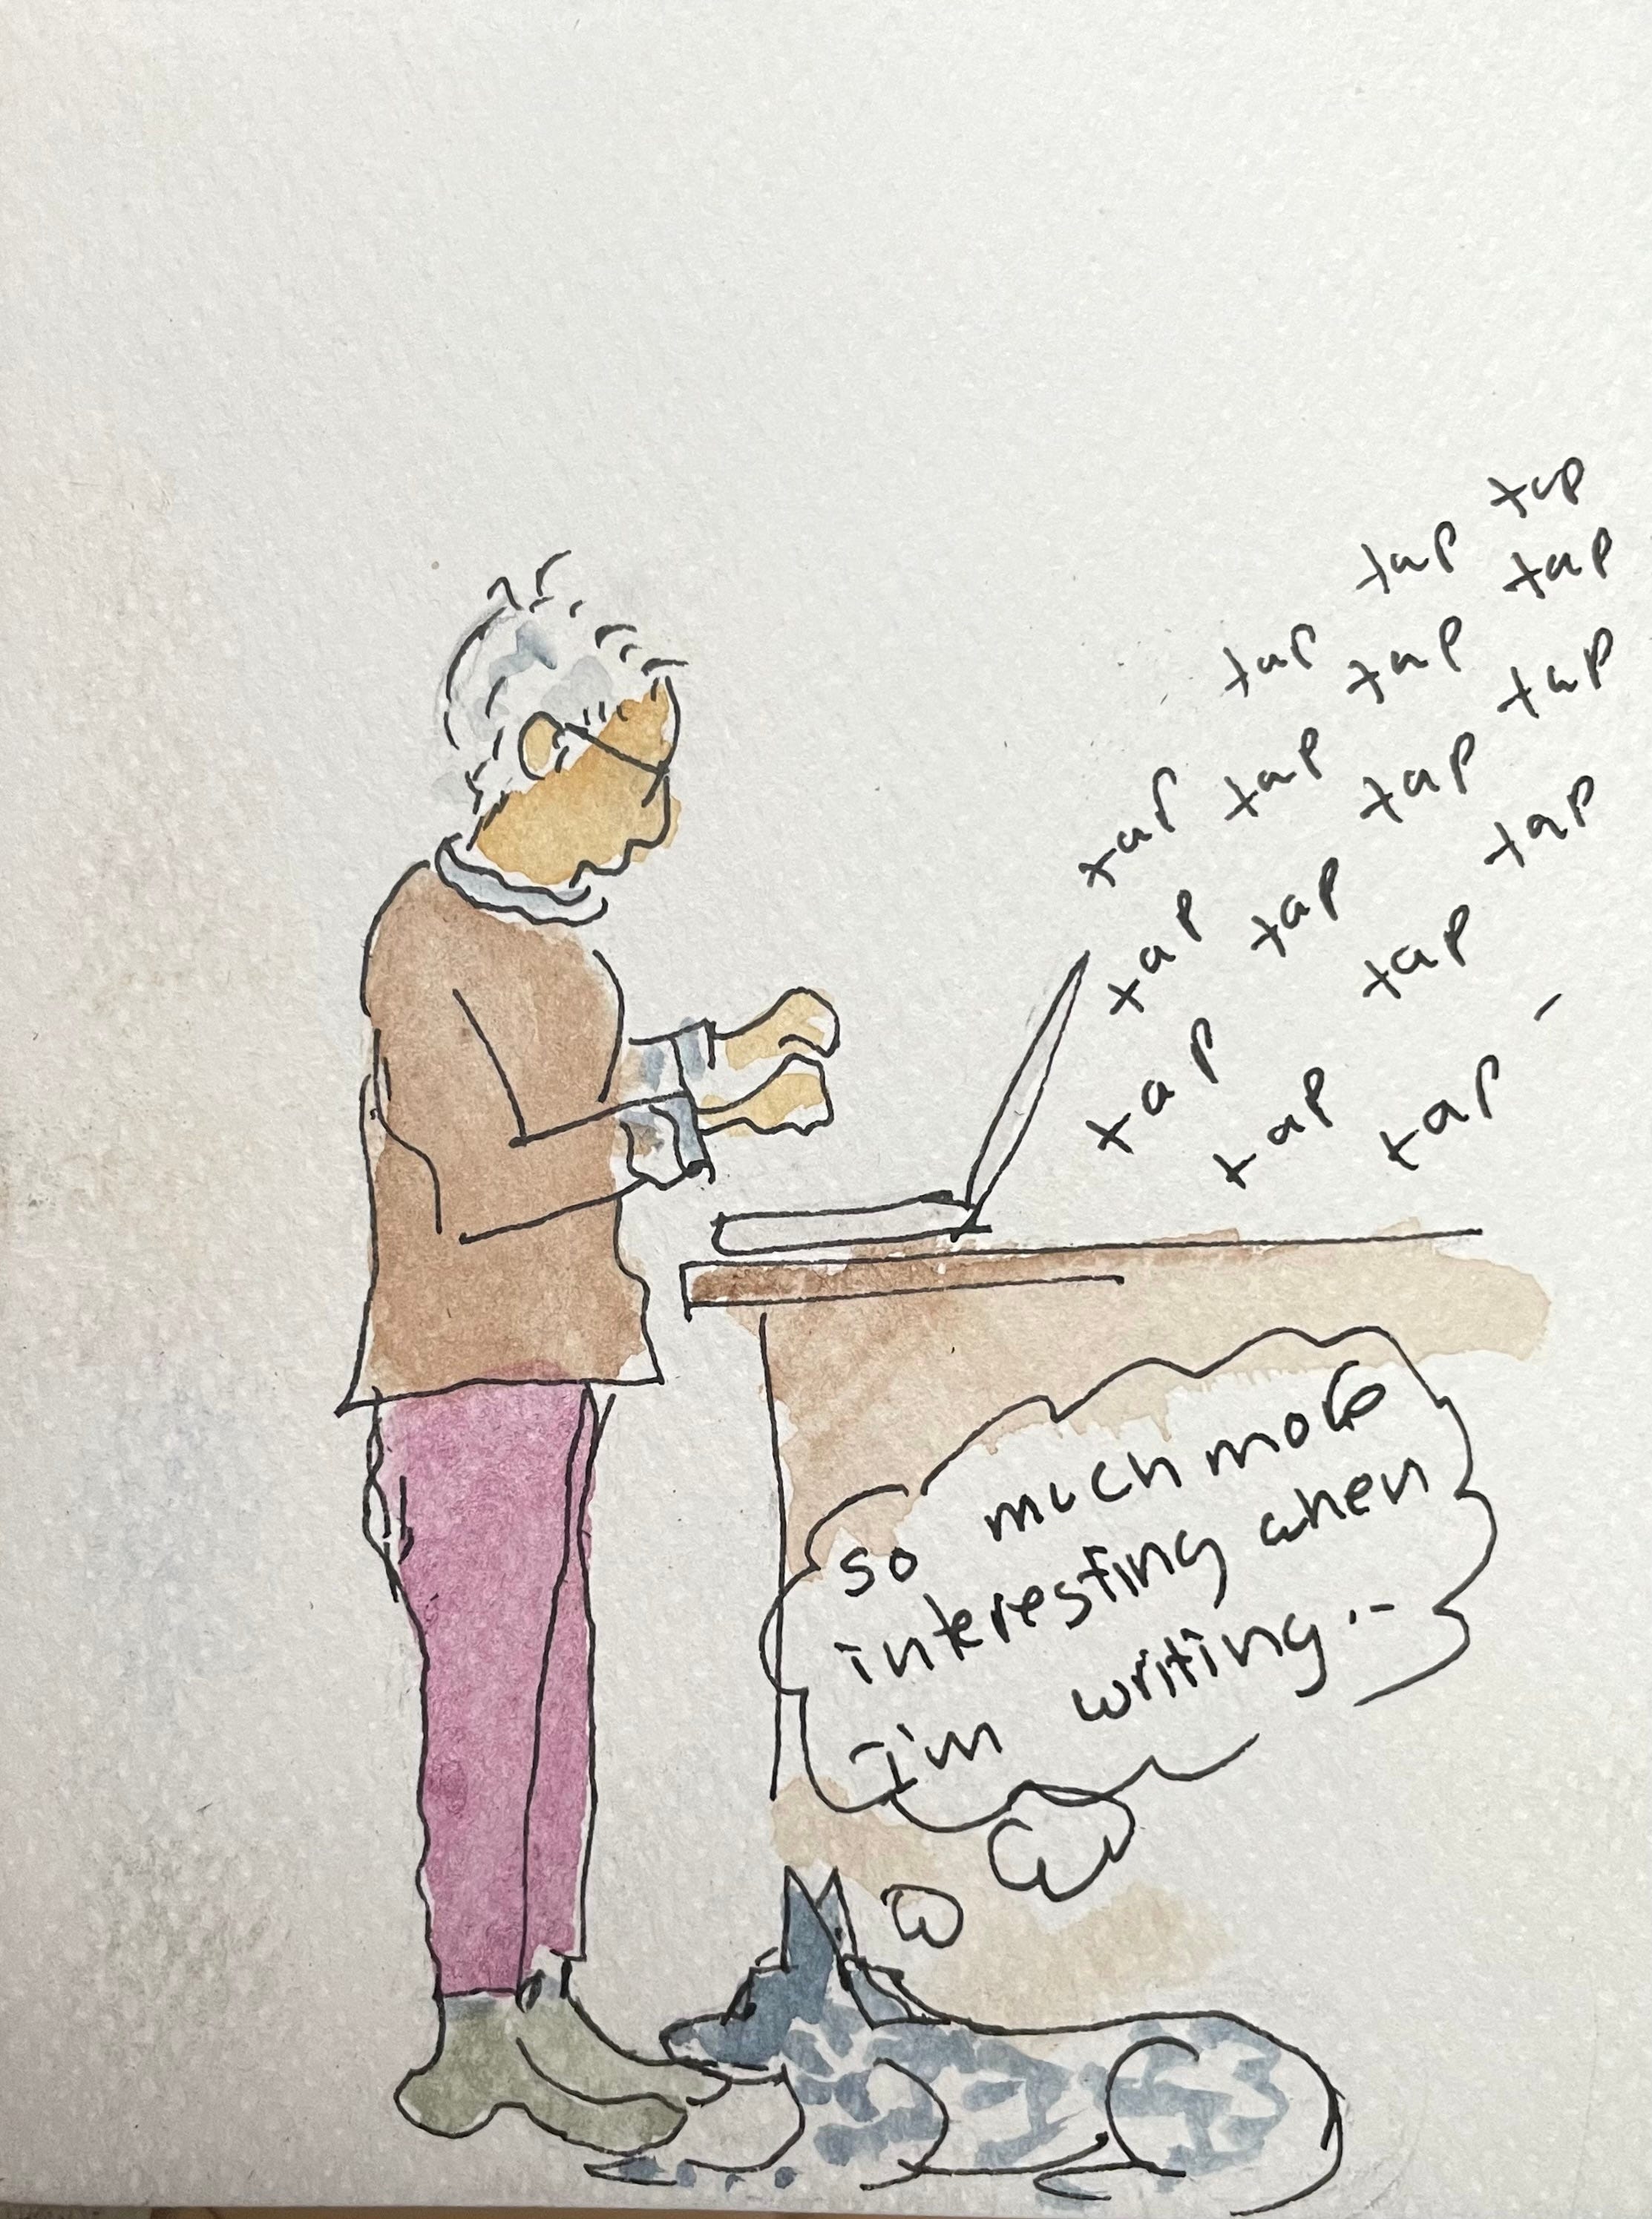 tap tap tap tap
tap tap tap tap
tap tap tap tap
tap tap tap
tap -
so much more
interesting when
I'm writing..-